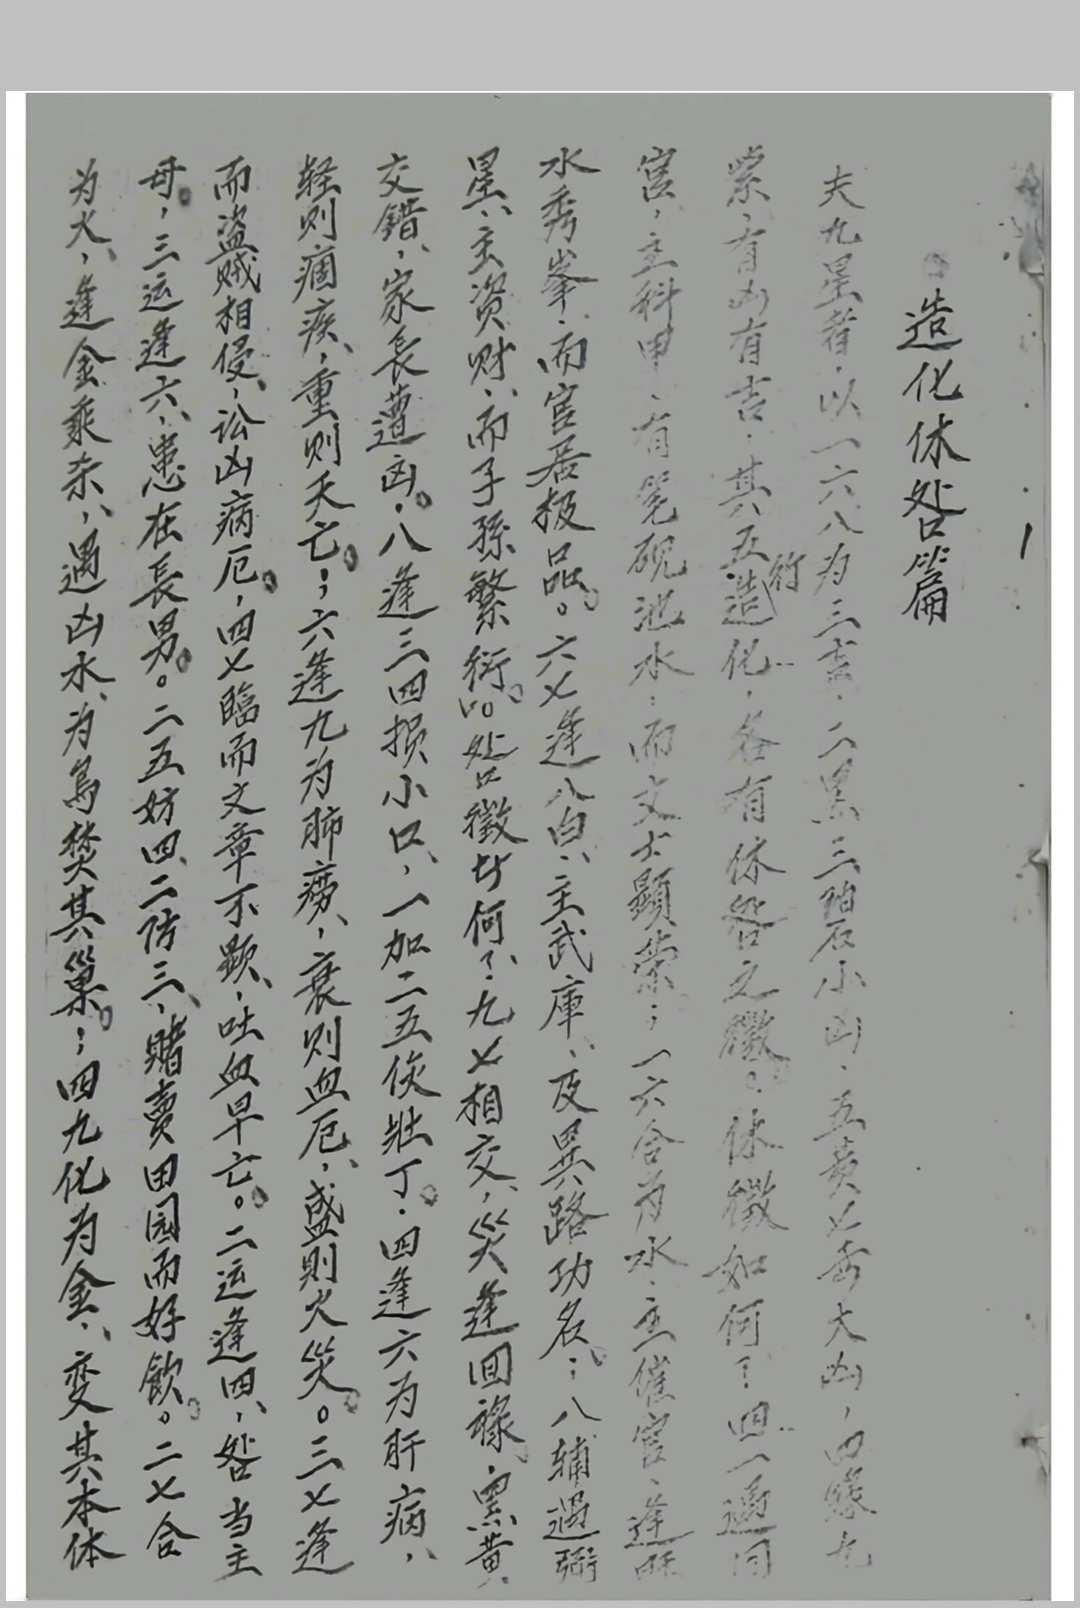 造化休咎篇
1
夫九星者，以一六八为三吉，二黑三碧小凶，五黄七赤大凶，四绿九
紫，有凶有吉，其五造化，各有休咎之徵。休徵如何？四一遇同
竹
宫，主科甲，有笔砚池水，而文士顯荣；一六合为水，主催官，逢
水秀峯，而官居极品。六七逢八白，主武庫，及異路功名；八辅遇弼
星，主资财，而子孫繁衍。咎徵如何？九七相交，災逢回禄，黑黄
交错，家長遭凶。八逢三四損小口，一加二五伤壯丁。四逢六为肝病，
轻则痼疾，重则夭亡；六逢九为肺痨，衰则血厄，盛则火災。三七逢
而盗贼相侵，讼凶病厄，四七臨而文章不顯，吐血早亡。二运逢四，咎当主
母，三运逢六，患在長男。二五妨四，二防三，赌賣田园而好飲。二七合
为火，逢金乘杀，遇凶水，为鳥焚其巢；四九化为金，变其本体